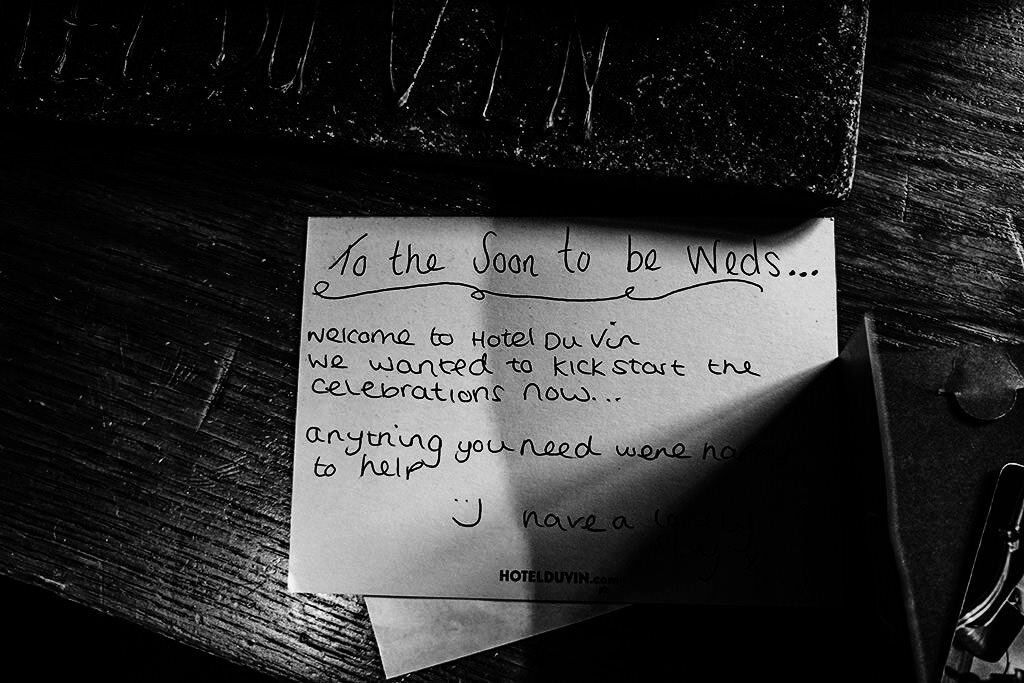 To the Soon to be Weds...
welcome to Hotel Du Vin
we wanted to kickstart the
celebrations now...
anything you need were
to help
have a lovely
stay
HOTELDUVIN.com